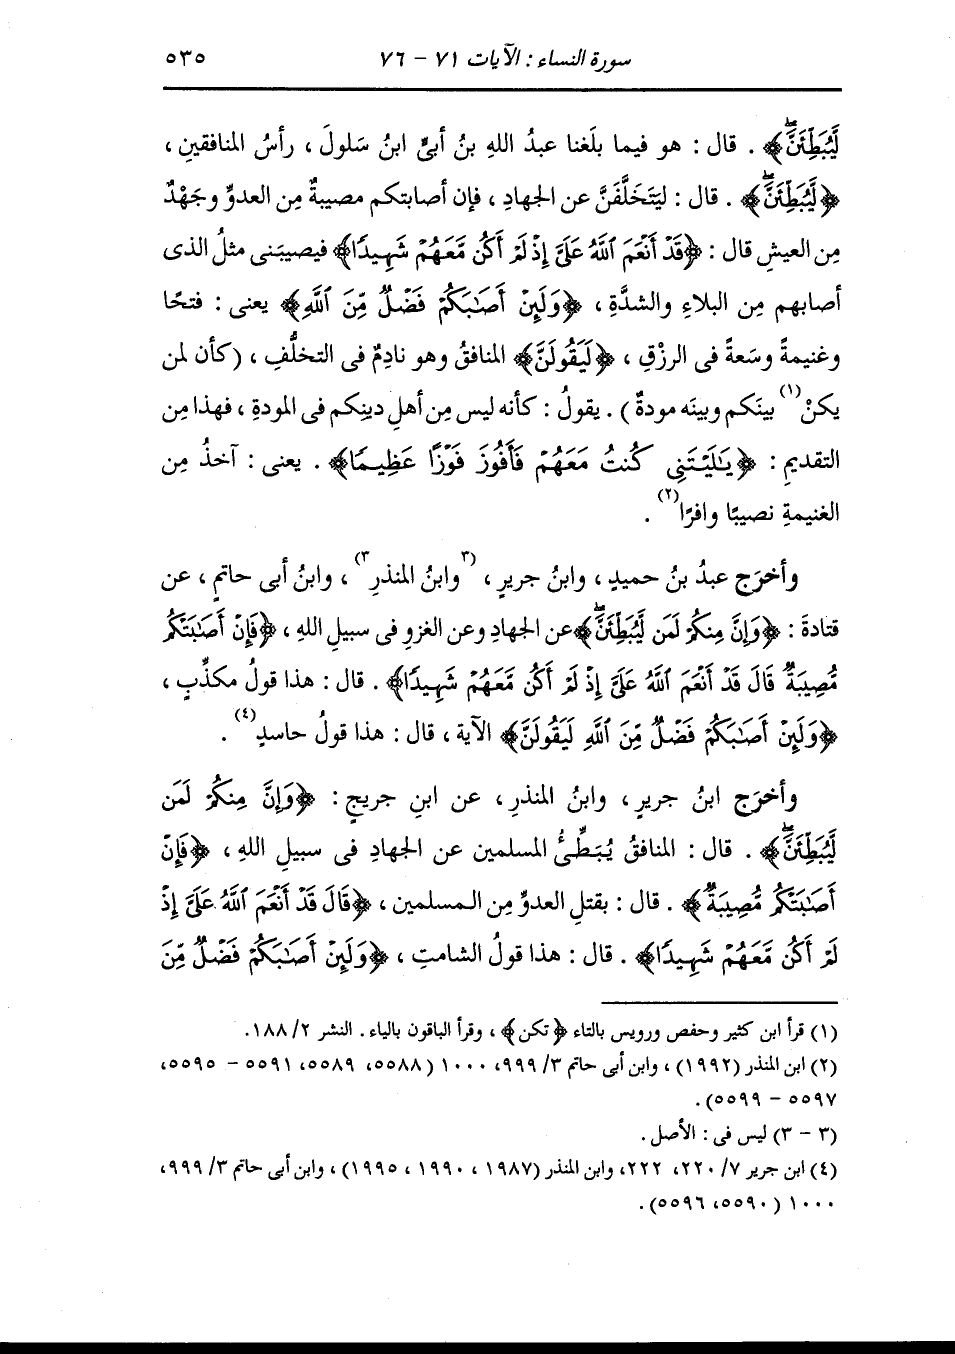 سورة النساء : الآيات ٧١ - ٧٦ ٥٣٥
لَّيُبَطِّئَنَّ﴾ . قال : هو فيما بلَغنا عبدُ اللهِ بنُ أبىٍّ ابنُ سَلولَ ، رأسُ المنافقين ،
﴿لَّيُبَطِّئَنَّ﴾ . قال : ليَتَخَلَّفَنَّ عن الجهادِ ، فإن أصابتكم مصيبةٌ مِن العدوِّ وجَهْدٌ
مِن العيشِ قال : ﴿قَدْ أَنْعَمَ ٱللَّهُ عَلَىَّ إِذْ لَمْ أَكُن مَّعَهُمْ شَهِيدًا﴾ فيصيبَنى مثلُ الذى
أصابهم مِن البلاءِ والشدَّةِ ، ﴿وَلَئِنْ أَصَٰبَكُمْ فَضْلٌ مِّنَ ٱللَّهِ﴾ يعنى : فتحًا
وغنيمةً وسَعةً فى الرزْقِ ، ﴿لَيَقُولَنَّ﴾ المنافقُ وهو نادِمٌ فى التخلُّفِ ، (كأن لمن
يكنْ(١) بينَكم وبينَه مودةٌ) . يقولُ : كأنه ليس مِن أهلِ دينِكم فى المودةِ ، فهذا مِن
التقديمِ : ﴿يَٰلَيْتَنِى كُنتُ مَعَهُمْ فَأَفُوزَ فَوْزًا عَظِيمًا﴾ . يعنى : آخذُ مِن
الغنيمةِ نصيبًا وافرًا(٢) .
وأخرَج عبدُ بنُ حميدٍ ، وابنُ جريرٍ ، (٣وابنُ المنذرِ٣) ، وابنُ أبى حاتمٍ ، عن
قتادةَ : ﴿وَإِنَّ مِنكُمْ لَمَن لَّيُبَطِّئَنَّ﴾ عن الجهادِ وعن الغزوِ فى سبيلِ اللهِ ، ﴿فَإِنْ أَصَٰبَتْكُم
مُّصِيبَةٌ قَالَ قَدْ أَنْعَمَ ٱللَّهُ عَلَىَّ إِذْ لَمْ أَكُن مَّعَهُمْ شَهِيدًا﴾ . قال : هذا قولُ مكذِّبٍ ،
﴿وَلَئِنْ أَصَٰبَكُمْ فَضْلٌ مِّنَ ٱللَّهِ لَيَقُولَنَّ﴾ الآية ، قال : هذا قولُ حاسدٍ(٤) .
وأخرَج ابنُ جريرٍ ، وابنُ المنذرِ ، عن ابنِ جريجٍ : ﴿وَإِنَّ مِنكُمْ لَمَن
لَّيُبَطِّئَنَّ﴾ . قال : المنافقُ يُبَطِّئُ المسلمين عن الجهادِ فى سبيلِ اللهِ ، ﴿فَإِنْ
أَصَٰبَتْكُم مُّصِيبَةٌ﴾ . قال : بقتلِ العدوِّ مِن المسلمين ، ﴿قَالَ قَدْ أَنْعَمَ ٱللَّهُ عَلَىَّ إِذْ
لَمْ أَكُن مَّعَهُمْ شَهِيدًا﴾ . قال : هذا قولُ الشامتِ ، ﴿وَلَئِنْ أَصَٰبَكُمْ فَضْلٌ مِّنَ
(١) قرأ ابن كثير وحفص ورويس بالتاء ﴿تكن﴾ ، وقرأ الباقون بالياء . النشر ٢/ ١٨٨.
(٢) ابن المنذر (١٩٩٢) ، وابن أبى حاتم ٣/ ٩٩٩، ١٠٠٠ (٥٥٨٨، ٥٥٨٩، ٥٥٩١ - ٥٥٩٥،
٥٥٩٧ - ٥٥٩٩).
(٣ - ٣) ليس فى : الأصل .
(٤) ابن جرير ٧/ ٢٢٠، ٢٢٢، وابن المنذر (١٩٨٧ ، ١٩٩٠ ، ١٩٩٥) ، وابن أبى حاتم ٣/ ٩٩٩،
١٠٠٠ (٥٥٩٠، ٥٥٩٦) .